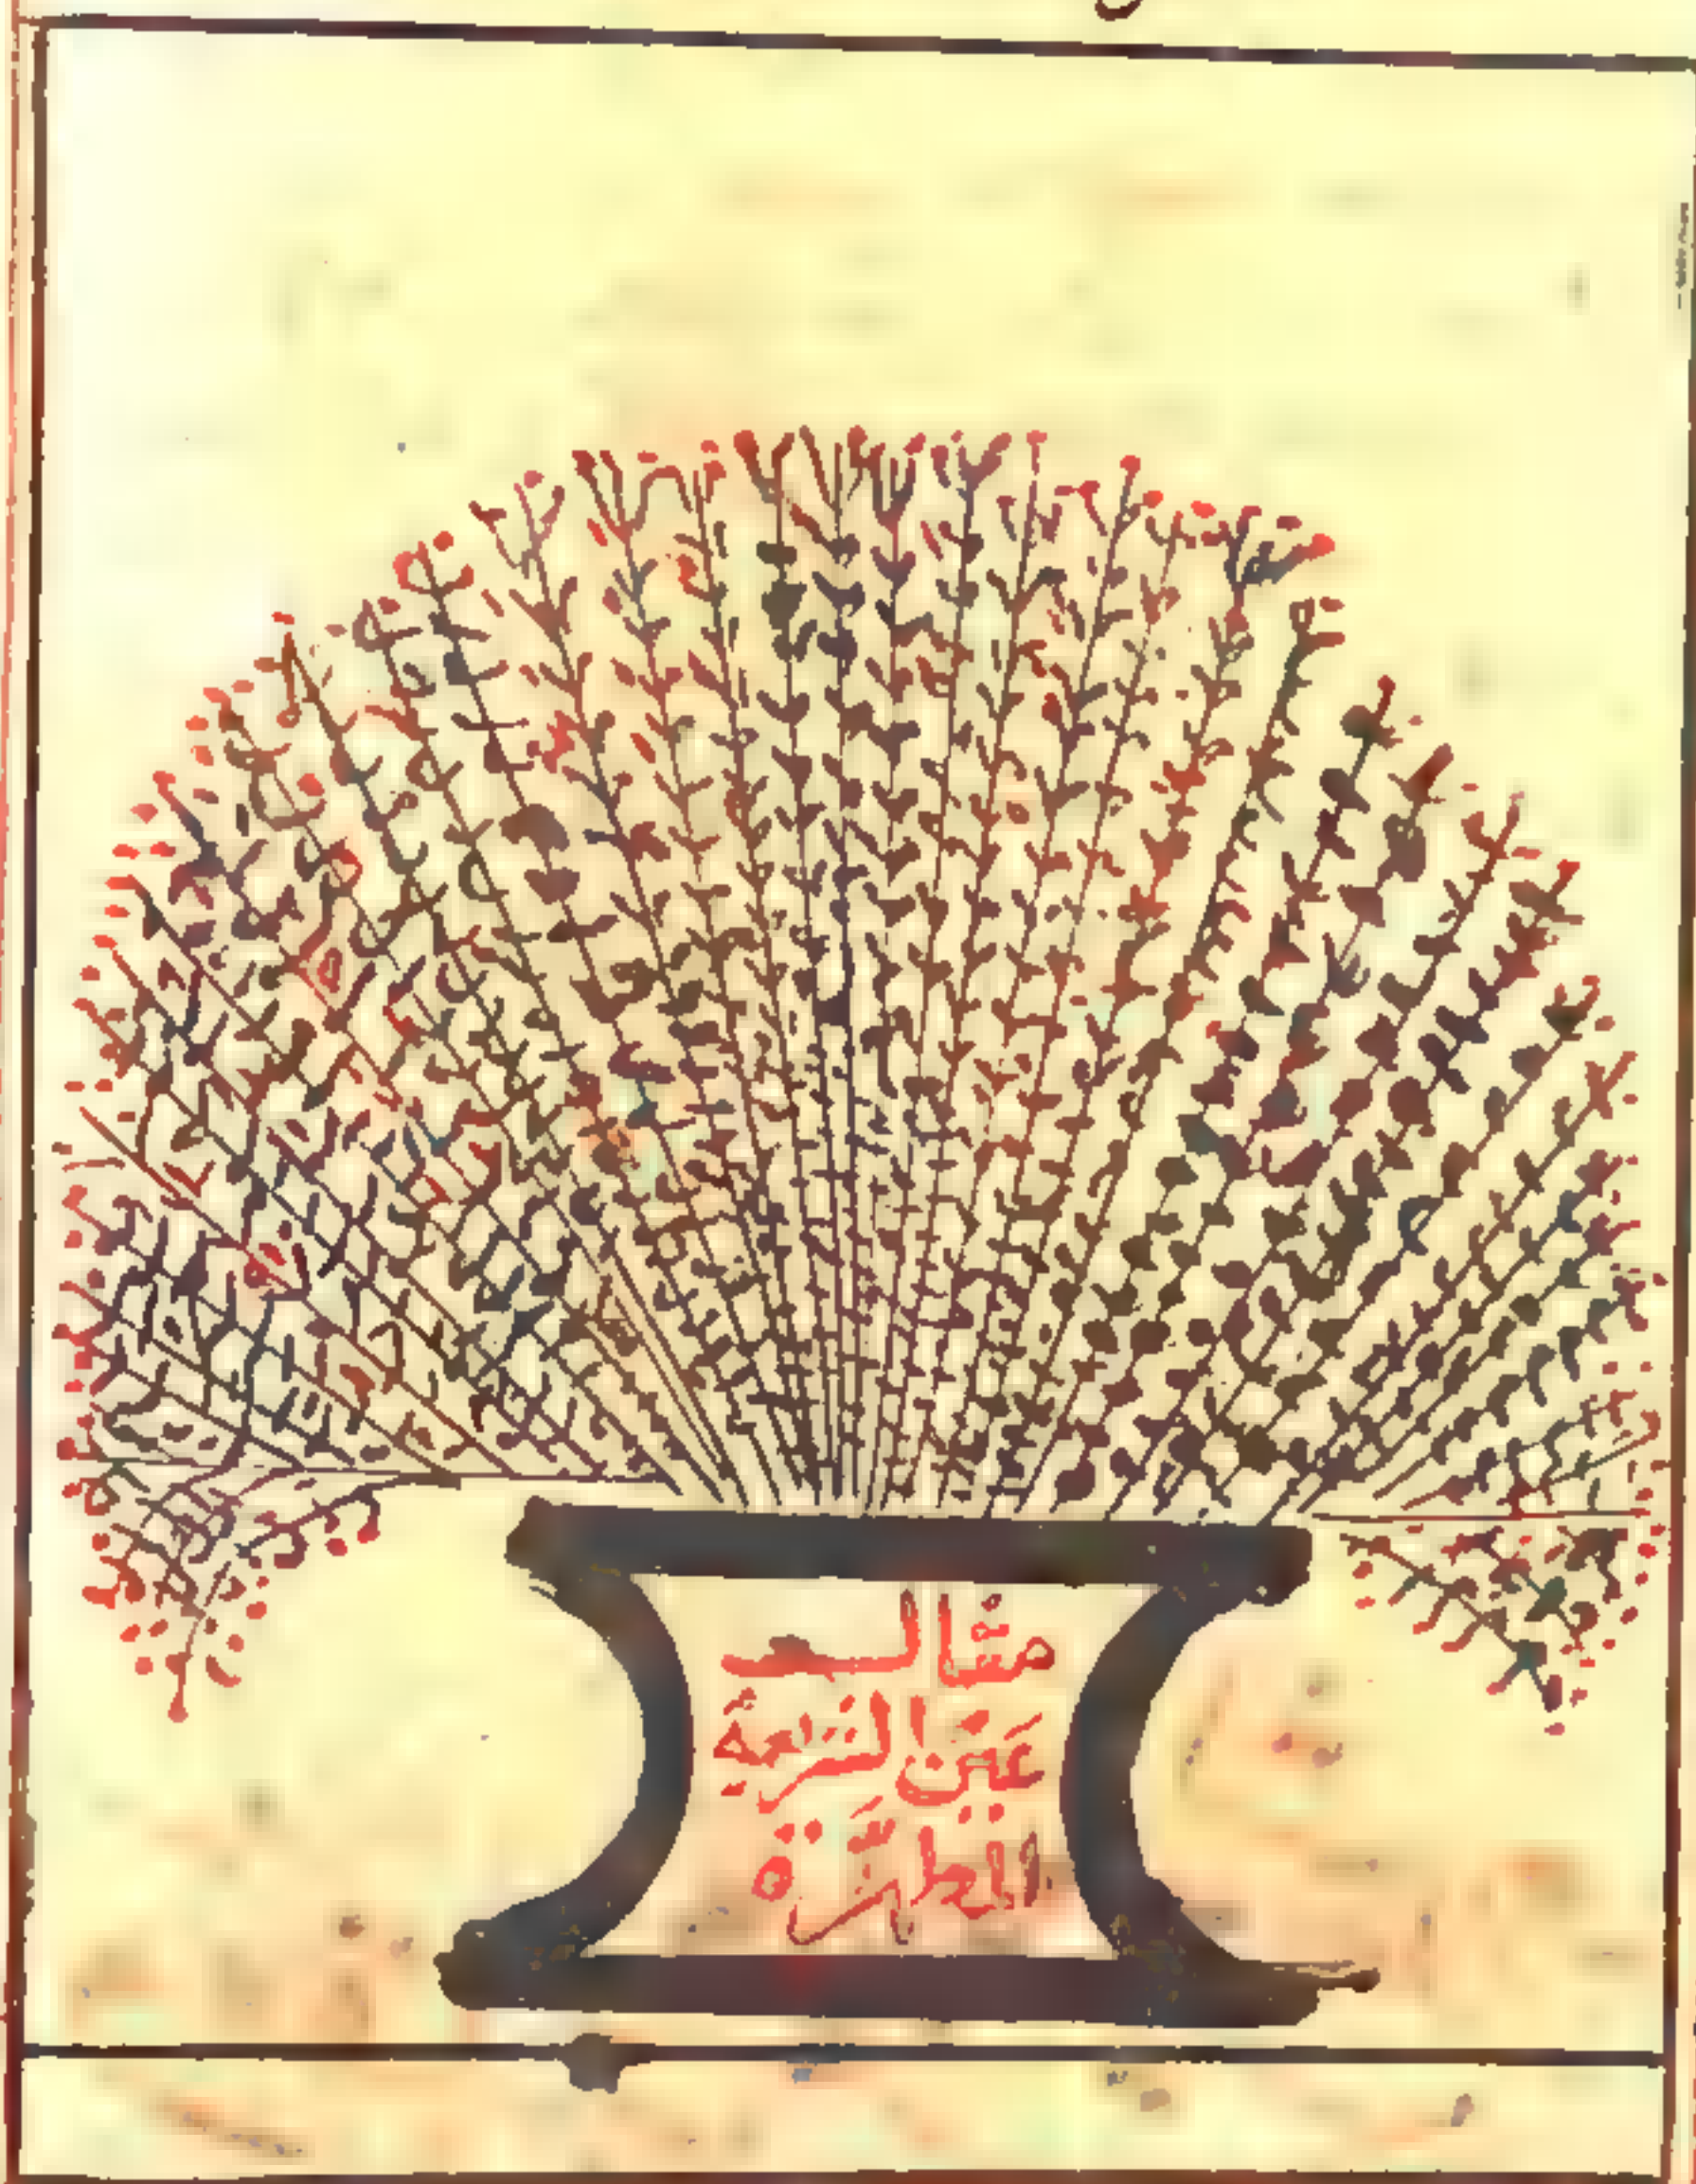 مثال
عَيْن الشريعة
المطهَّرة